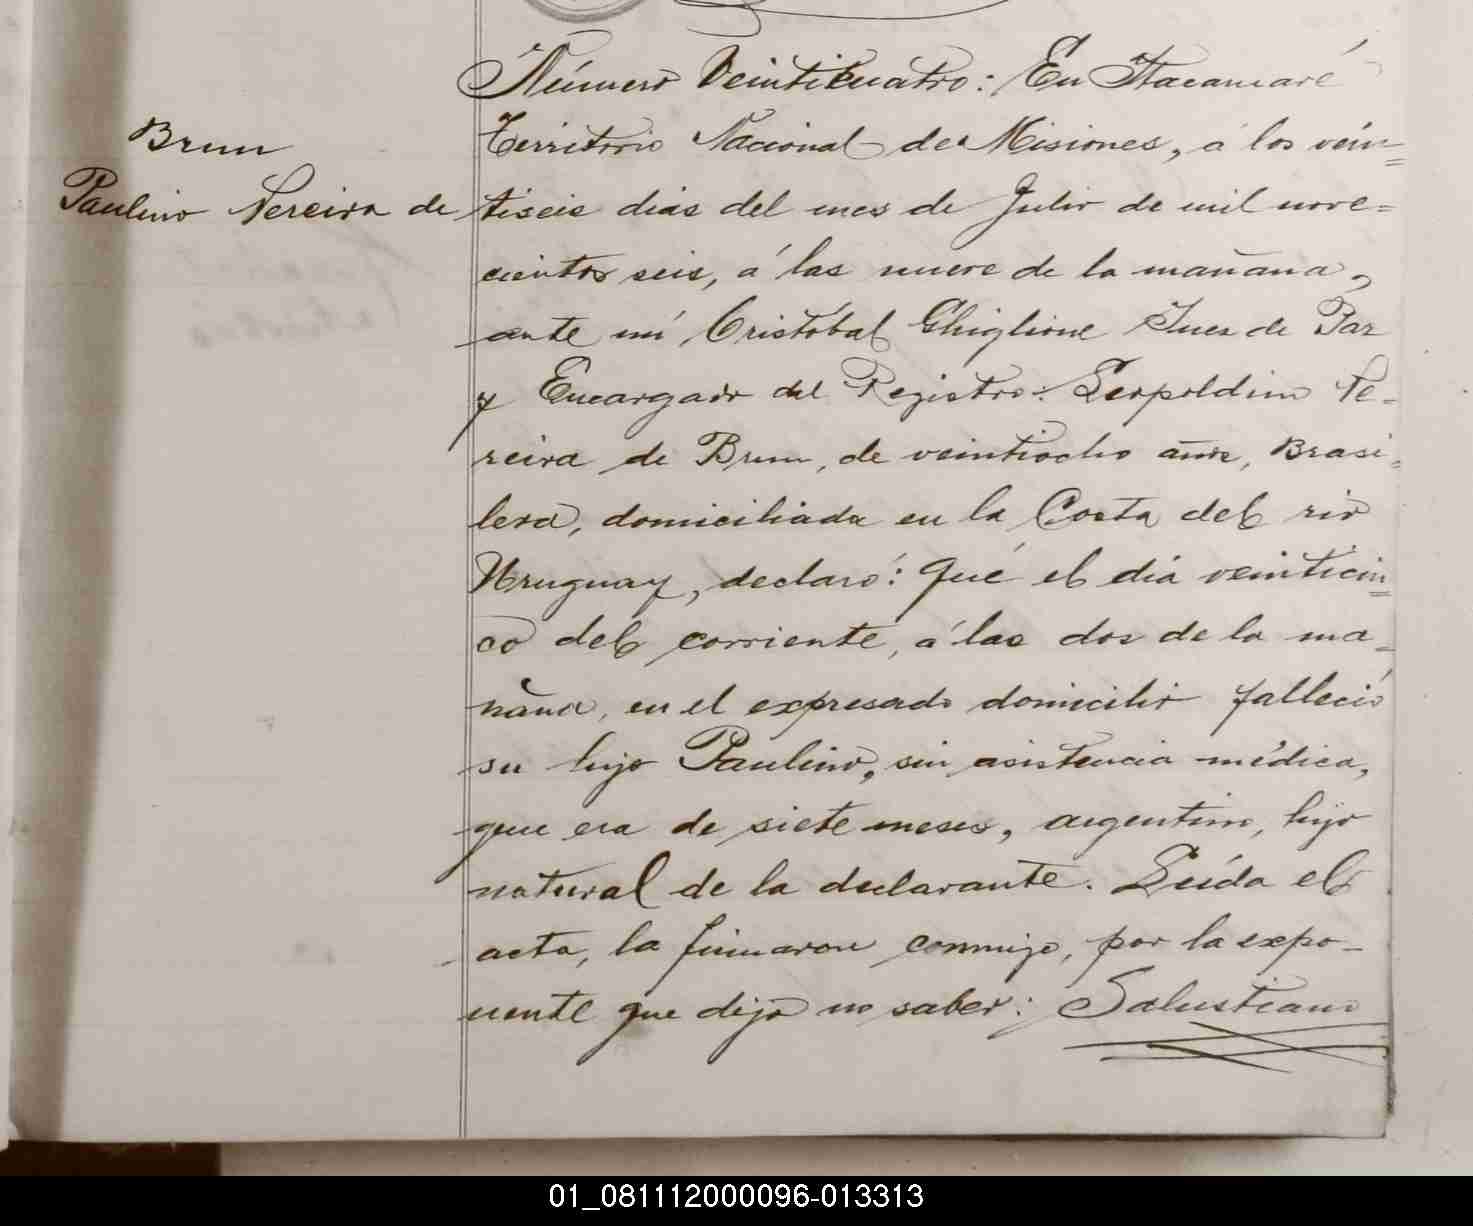 Brum
Paulino Pereira de
Número Veinticuatro: En Itacaruaré
Territorio Nacional de Misiones, á los vein=
tiseis dias del mes de Julio de mil nove=
cientos seis, á las nueve de la mañana,
ante mí Cristóbal Ghiglione Juez de Paz
y Encargado del Registro: Leopoldina Pe=
reira de Brum, de veintiocho años, Brasi=
lera, domiciliada en la Costa del rio
Uruguay, declaró: Que el dia veinticin=
co del corriente, á las dos de la ma=
ñana, en el expresado domicilio falleció
su hijo Paulino, sin asistencia médica,
que era de siete meses, argentino, hijo
natural de la declarante. Leída el
acta, la firmaron conmigo, por la expo-
nente que dijo no saber: Salustiano
01_081112000096-013313